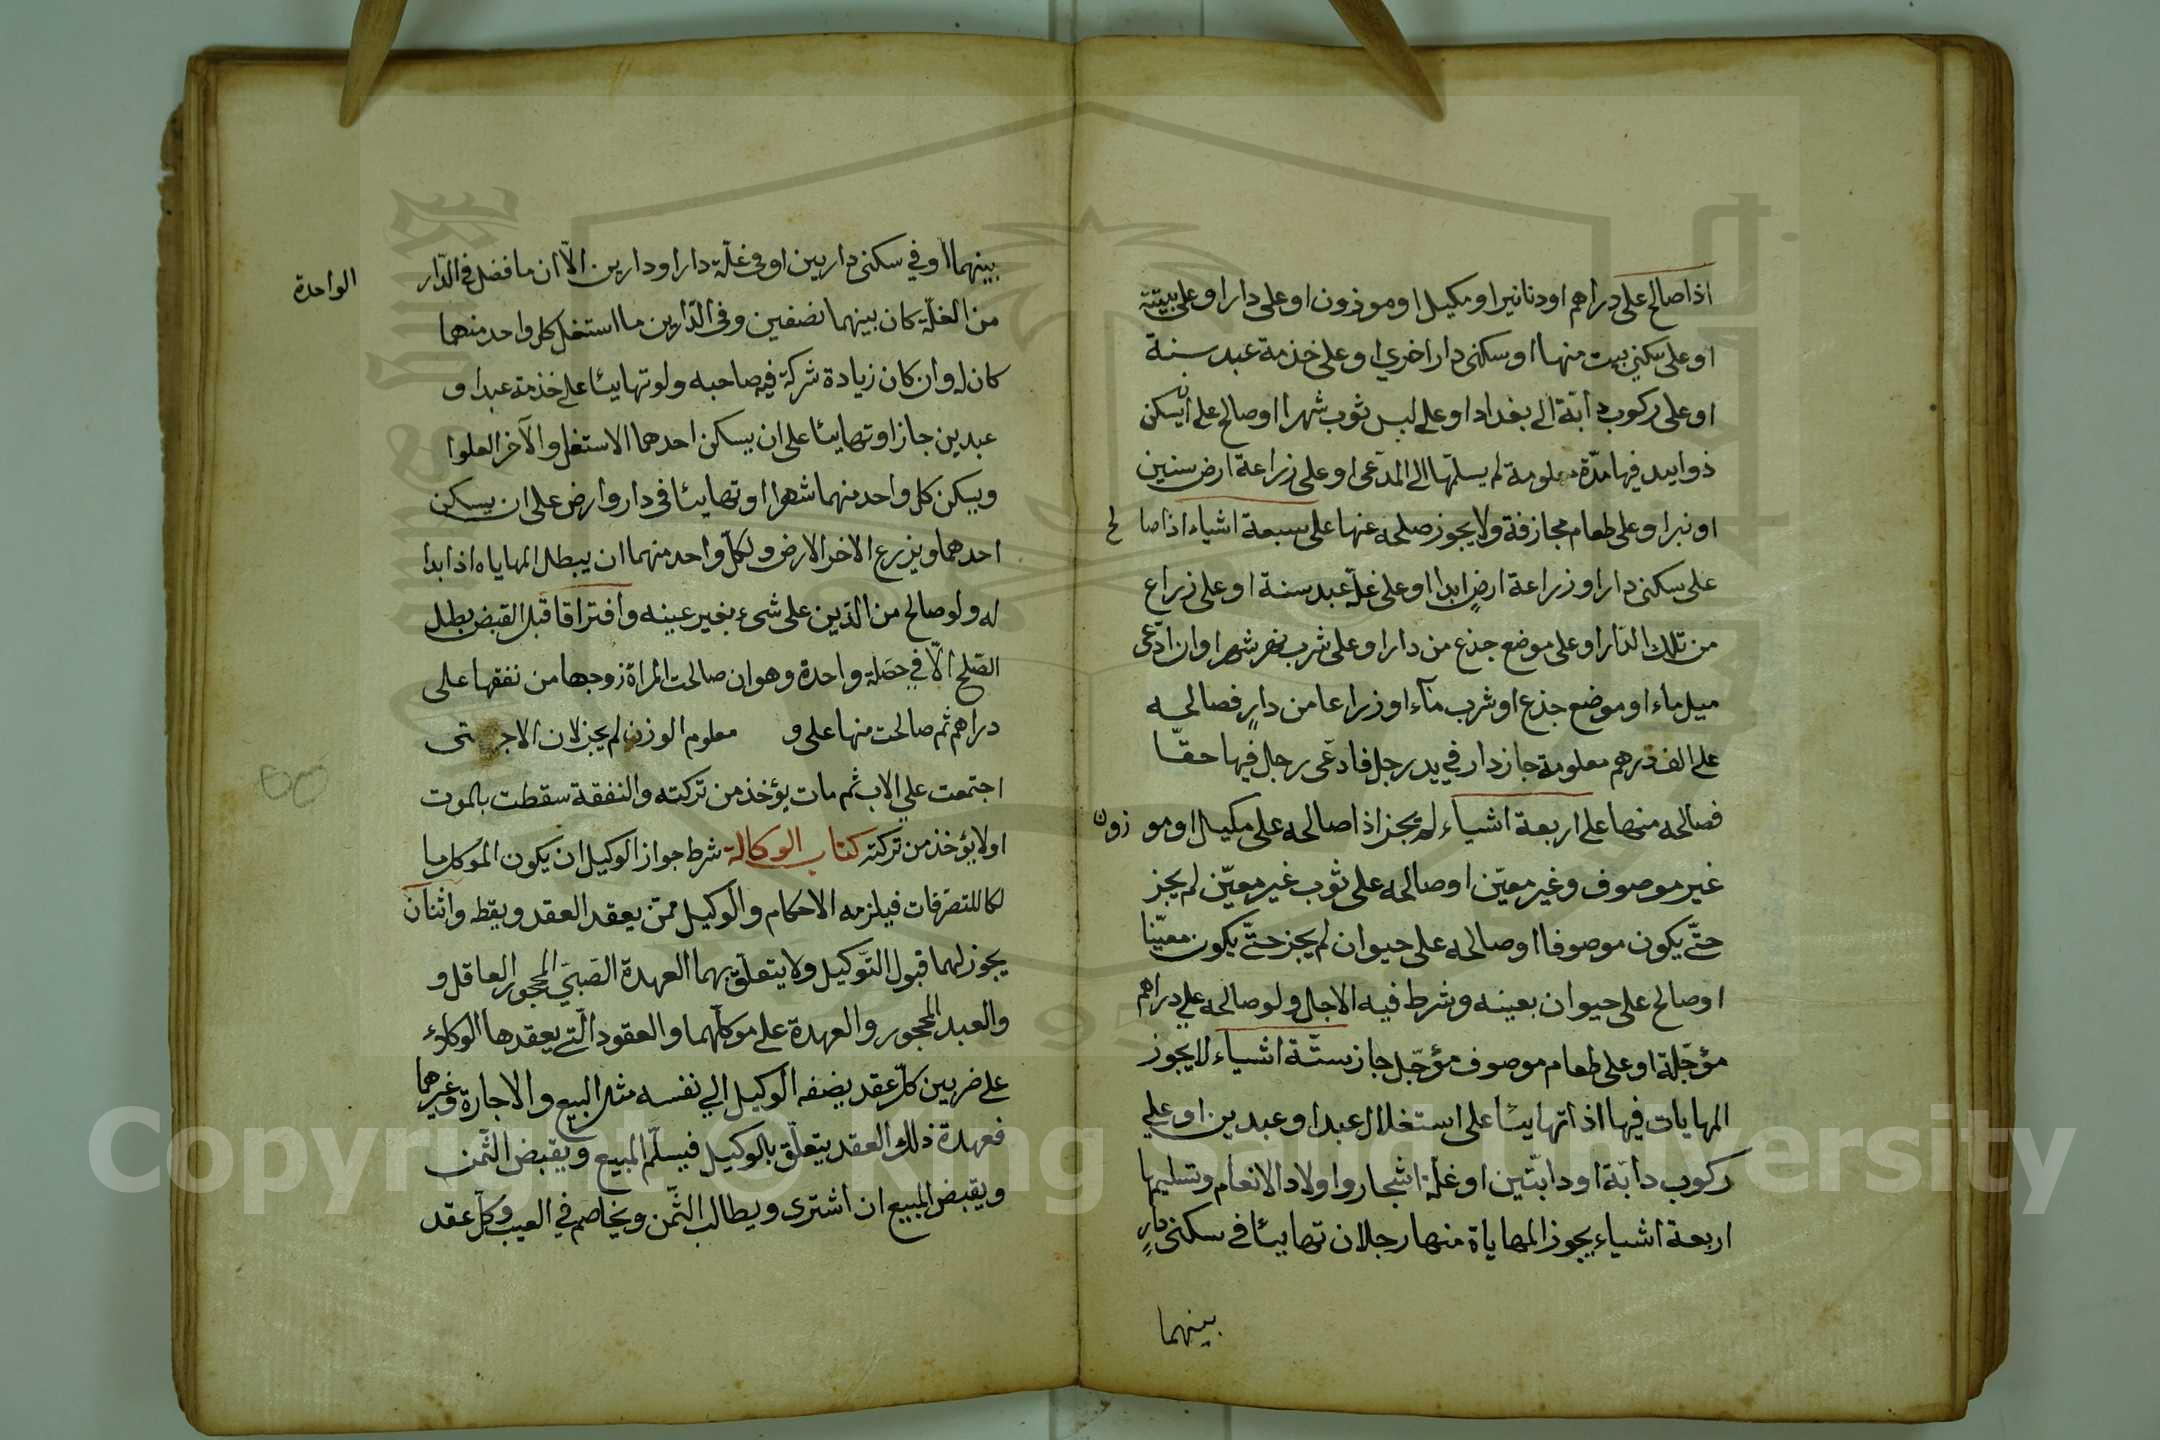 اذا صالح على دراهم او دنانير او مكيل او موزون او على دار او على بيته
او على سكنى بيت منها او سكنى دار اخري او على خذمة عبد سنة
او على ركوب دابّة الى بغداد او على لبس ثوب شهرا او صالح على ان يسكن
ذو اليد فيها مدّة معلومة ثم يسلمها الى المدّعى او على زراعة ارض سنين
او نبرا و على طعام مجازفة ولا يجوز صلحه عنها على سبعة اشياء اذا صالح
على سكنى دار او زراعة ارضٍ ابدا او على غلّة عبد سنة او على ذراع
من تلك الدّار او على موضع جذع من دار او على شرب نهر شهرا وان ادّعى
ميل ماء او موضع جذع او شرب مآء او زراعا من دارٍ فصالحه
على الف درهم معلومة جاز دار في يد رجل فادّعى رجل فيها حقّا
فصالحه منها على اربعة اشياء لم يجز اذا صالحه على مكيل او موزون
غير موصوف وغير معيّن او صالحه على ثوب غير معيّن لم يجز
حتّى يكون موصوفا او صالحه على حيوان لم يجز حتّى يكون معيّنا
او صالح على حيوان بعينه وشرط فيه الاجل ولو صالحه علي دراهم
مؤجّلة او على طعام موصوف مؤجّل جاز ستّة اشياء لا يجوز
المهايات فيها اذا تهاييئا على استغلال عبد او عبدين او علي
ركوب دابّة او دابّتين او غلّة اشجار و اولاد الانعام وتسليمها
اربعة اشياء يجوز المهاياة منها رجلان تهاييئا في سكنى دارٍ
بينهما
بينهما او في سكنى دارين او في غلّة دار او دارين الّا ان ما فضل في الدّار الواحدة
من الغلّة كان بينهما نصفين وفي الدّارين ما استغل كل واحد منهما
كان له وان كان زيادة شركة فيه صاحبه ولو تهاييئا على خذمة عبد او
عبدين جاز او تهاييئا على ان يسكن احدهما الاستغل والآخر العلوا
ويسكن كل واحد منهما شهرا او تهاييئا في دار وارض على ان يسكن
احدهما ويزرع الاخر الارض ولكلّ واحد منهما ان يبطل المهاياه اذا بدا
له ولو صالح من الدّين على شيء بغير عينه وافتراقا قبل القبض بطل
الصّلح الّا في خصلة واحدة وهو ان صالحت المراة زوجها من نفقها على
دراهم ثم صالحت منها على و معلوم الوزن لم يجز لان الاجر تى
اجتمعت علي الاب ثم مات يؤخذ من تركته والنفقة سقطت بالموت
او لا يؤخذ من تركته كتاب الوكالة شرط جواز الوكيل ان يكون الموكل ما
لكا للتصرّفات فيلزمه الاحكام والوكيل ممّن يعقد العقد ويقظه واثنان
يجوز لهما قبول التّوكيل ولا يتعلّق بهما العهدة الصّبيّ المحجور العاقل و
والعبد المحجور والعهدة على موكلّهما والعقود الّتي يعقدها الوكلاء
على ضربين كلّ عقد يضفه الوكيل الي نفسه مثل البيع والاجارة وغيرهما
فعهدة ذلك العقد يتعلّق بالوكيل فيسلّم المبيع ويقبض الثّمن
ويقبض المبيع ان اشترى ويطالب الثّمن ويخاصم في العيب وكلّ عقد
Copyright © King Saud University